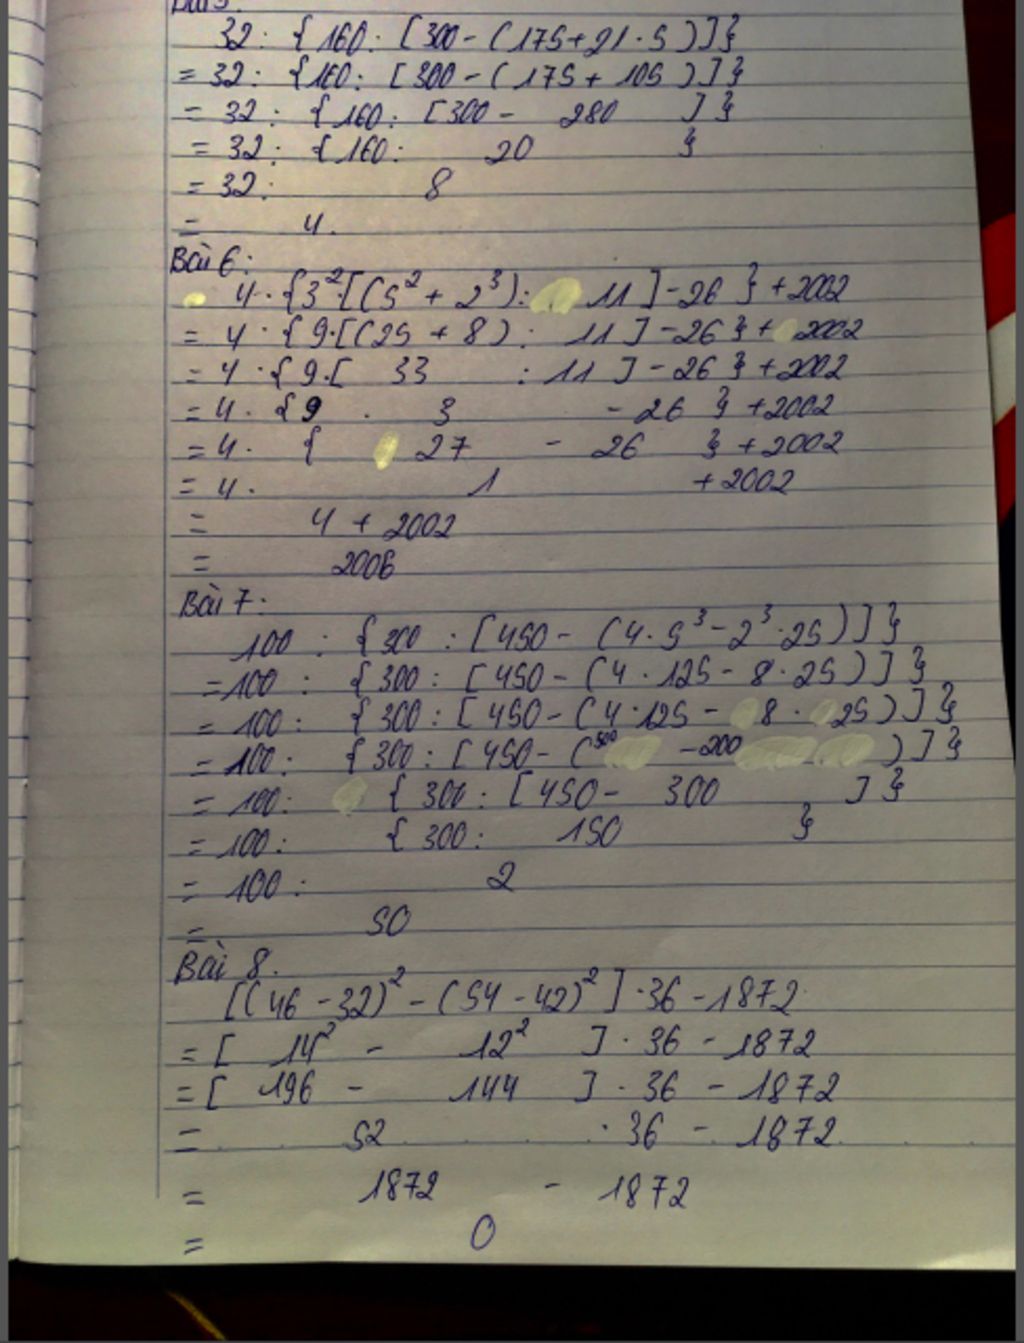 Bài 5:
32: {160: [300-(175+21·5)]}
= 32: {160: [300-(175+105)]}
= 32: {160: [300- 280 ]}
= 32: {160: 20 }
= 32: 8
= 4.
Bài 6:
4·{3²·[(5²+2³): 11]-26}+2002
= 4·{9·[(25+8): 11]-26}+2002
= 4·{9·[ 33 :11]-26}+2002
= 4·{9 · 3 -26}+2002
= 4· { 27 - 26 }+2002
= 4· 1 +2002
= 4+2002
= 2006
Bài 7:
100 : {300 : [450-(4·5³-2³·25)]}
=100 : {300: [450-(4·125-8·25)]}
= 100: {300: [450-(4·125- 8· 25)]}
= 100: {300: [450-(500 -200 )]}
= 100: {300: [450- 300 ]}
= 100: {300: 150 }
= 100: 2
= 50
Bài 8.
[(46-32)²-(54-42)²]·36-1872
= [ 14² - 12² ]·36-1872
= [ 196 - 144 ]·36-1872
= 52 ·36-1872
= 1872 - 1872
= 0